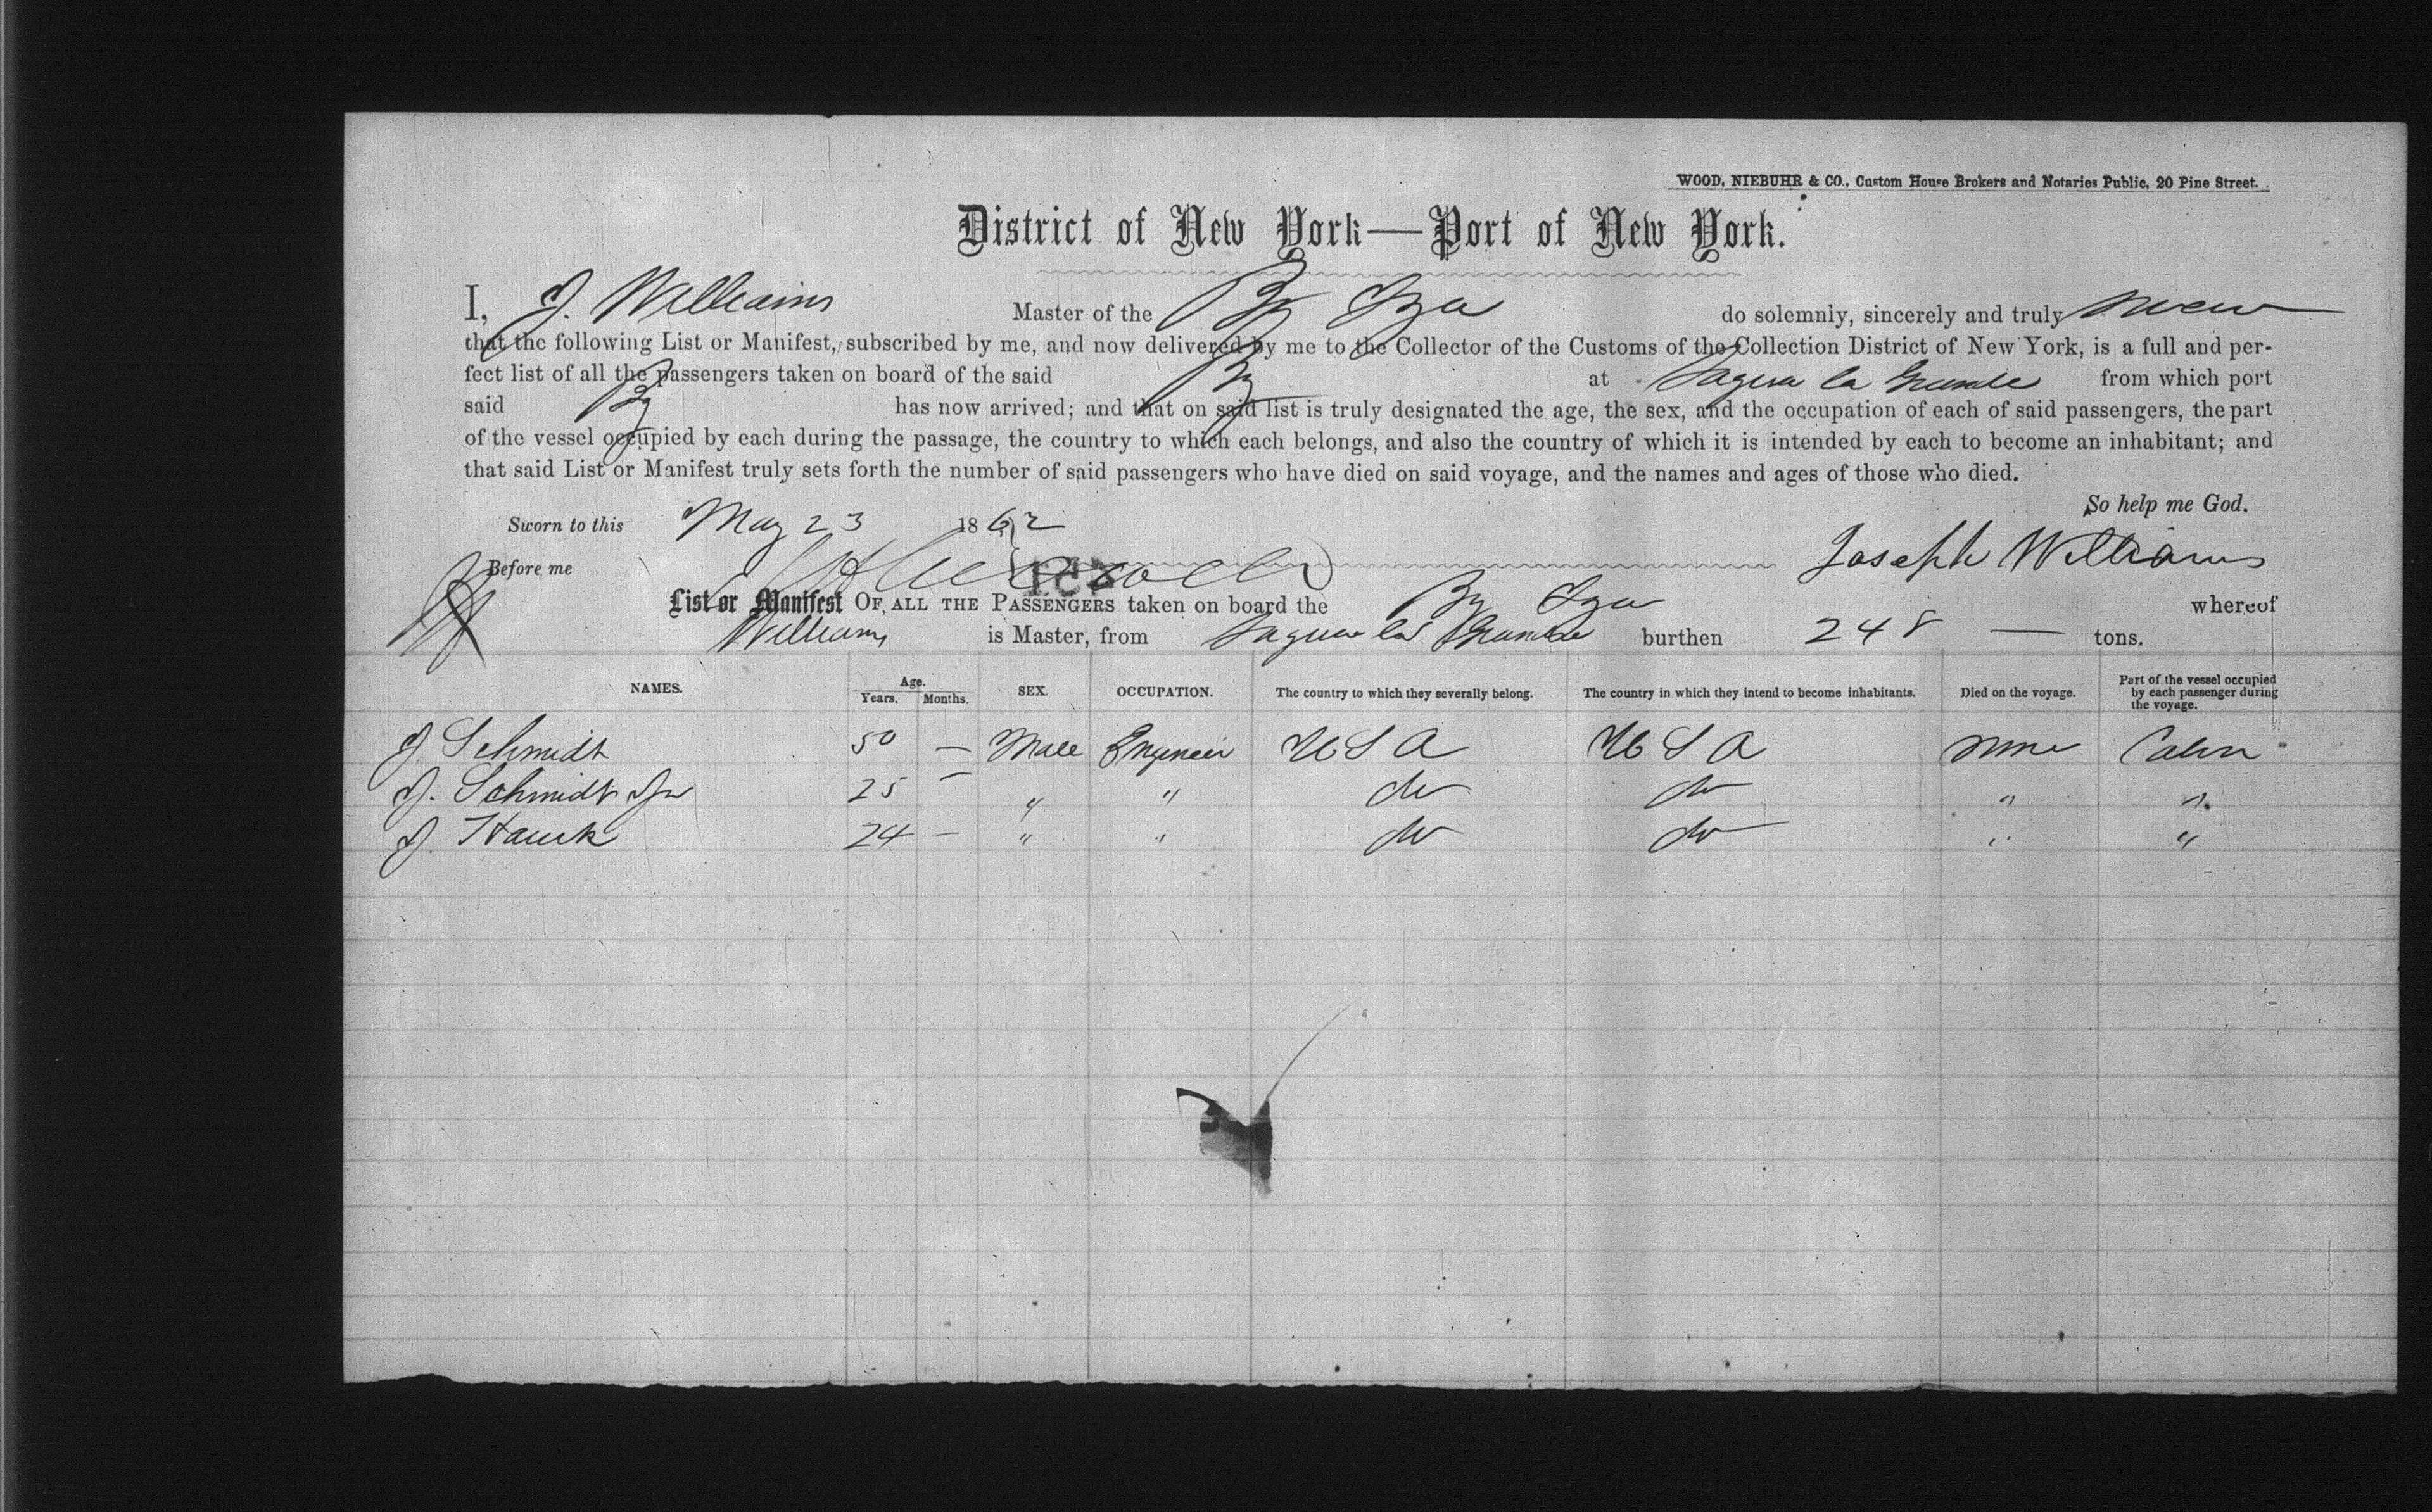 WOOD, NIEBUHR & CO., Custom House Brokers and Notaries Public, 20 Pine Street.
District of New York—Port of New York.
I, J. Williams Master of the Bg Iza do solemnly, sincerely and truly swear
that the following List or Manifest, subscribed by me, and now delivered by me to the Collector of the Customs of the Collection District of New York, is a full and per-
fect list of all the passengers taken on board of the said Bg at Sagua la Grande from which port
said Bg has now arrived; and that on said list is truly designated the age, the sex, and the occupation of each of said passengers, the part
of the vessel occupied by each during the passage, the country to which each belongs, and also the country of which it is intended by each to become an inhabitant; and
that said List or Manifest truly sets forth the number of said passengers who have died on said voyage, and the names and ages of those who died.
So help me God.
Sworn to this May 23 1862
Before me Joseph Williams
List or Manifest OF ALL THE PASSENGERS taken on board the Bg Iza whereof
Williams is Master, from Sagua la Grande burthen 248 — tons.
NAMES. Age. Years. Months. SEX. OCCUPATION. The country to which they severally belong. The country in which they intend to become inhabitants. Died on the voyage. Part of the vessel occupied by each passenger during the voyage.
J. Schmidt 50 — Male Engineer U S A U S A None Cabin
J. Schmidt Jr 25 — " " do do " "
J. Hauck 24 — " " do do " "